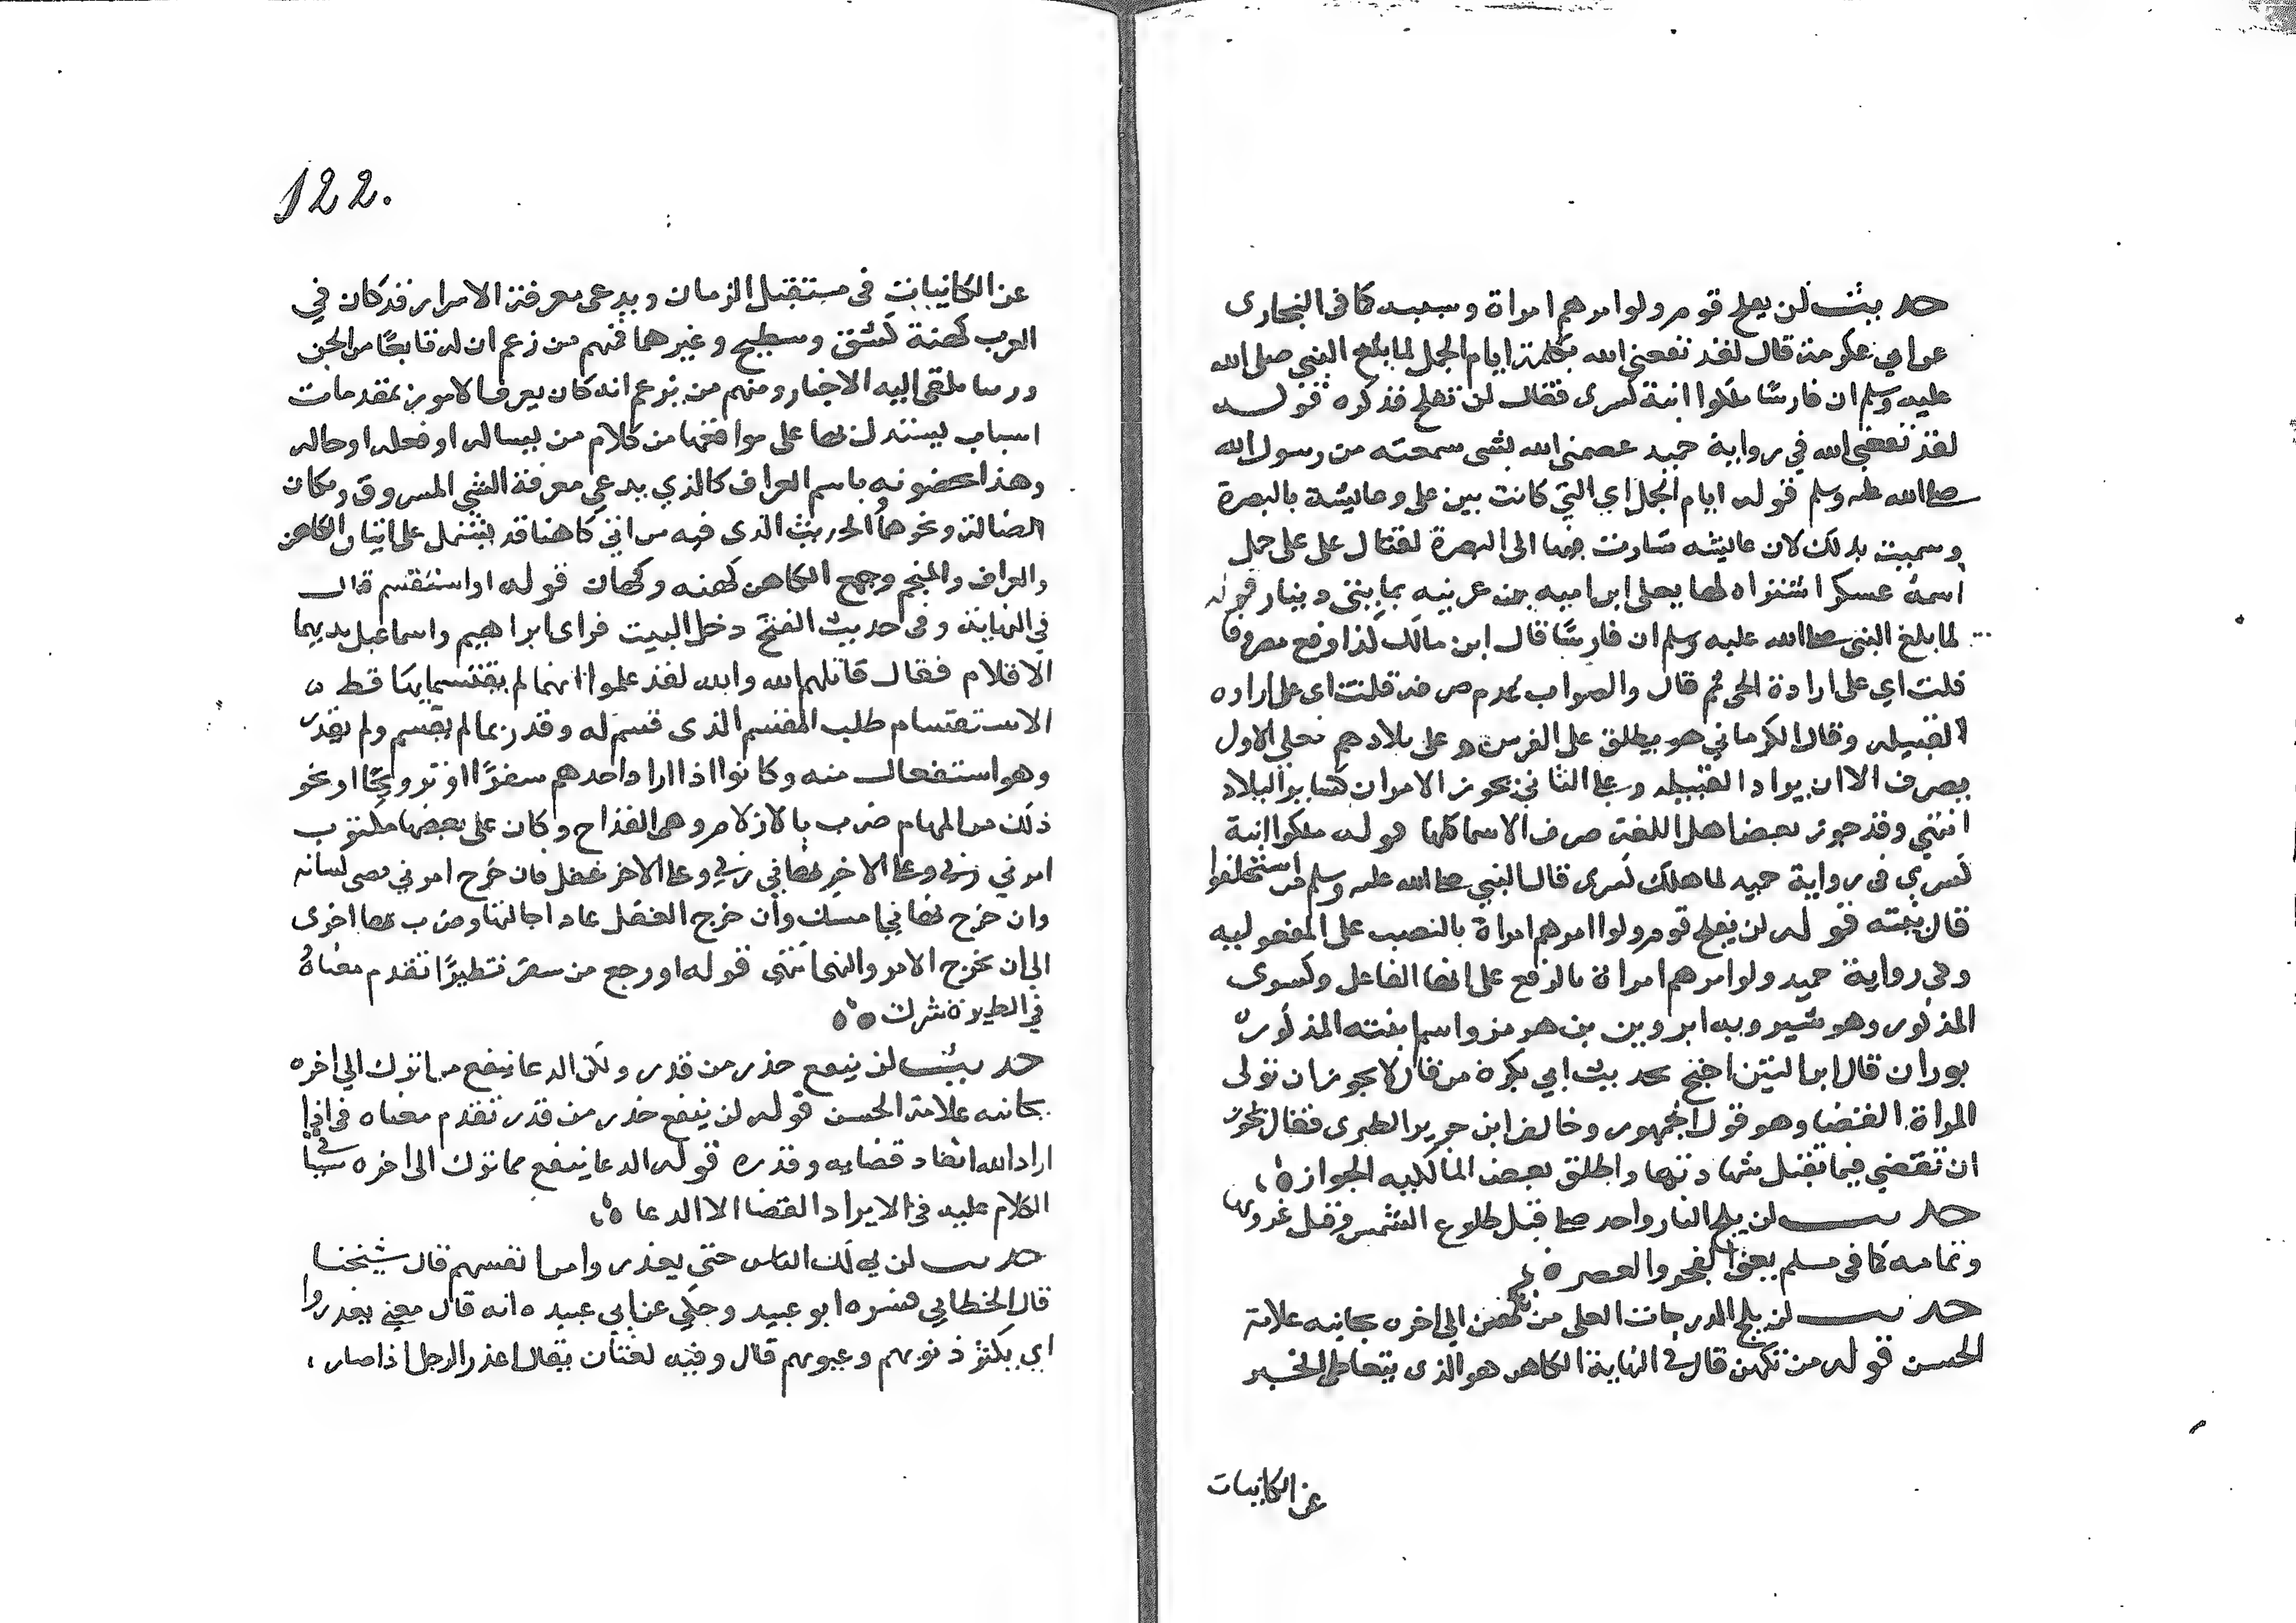 حديث لن يفلح قوم ولوا امرهم امراة وسببه كما في البخاري
عن ابي بكرة قال لقد نفعني الله بكلمة ايام الجمل لما بلغ النبي صلى الله
عليه وسلم ان فارسًا ملكوا ابنة كسرى فقال لن تفلح فذكره قوله
لقد نفعني الله في رواية حميد عصمني الله بشي سمعته من رسول الله
صلى الله عليه وسلم قوله ايام الجمل اي التي كانت بين علي وعايشة بالبصرة
وسميت بذلك لان عايشه سارت فيها الى البصرة لقتال على على جمل
اسمهُ عسكر اشتراه لها يعلى ابن اميه من عرينه بمايتي دينار قوله
لما بلغ النبي صلى الله عليه وسلم ان فارسًا قال ابن مالك كذا وقع مصروفا
قلت اي على ارادة الحي ثم قال والصواب عدم صرفه قلت اى على اراده
القبيله وقال الكرماني هو يطلق على الفرس وعلى بلادهم فعلى الاول
يصرف الا ان يراد القبيله وعلى الثاني يجوز الامران كساير البلاد
انتهي وقد جوز بعض اهل اللغة صرف الاسما كلها قوله ملكوا ابنة
كسري في رواية حميد لما هلك كسرى قال النبي صلى الله عليه وسلم من استخلفوا
قال بنته قوله لن يفلح قوم ولوا امرهم امراة بالنصب على المفعوليه
وفي رواية حميد ولوا امرهم امراة بالرفع على انها الفاعل وكسرى
المذكور وهو شيرويه ابرويز بن هرمز واسم ابنته المذكوره
بوران قال ابن التين احتج بحديث ابي بكره من قال لا يجوز ان تولى
المراة القضا وهو قول الجمهور وخالف ابن جرير الطبرى فقال يجوز
ان تقضي فيما تقبل شهادتها واطلق بعض المالكيه الجواز ه
حديث لن يلج النار واحد صلى قبل طلوع الشمس وقبل غروبها
وتمامه كما في مسلم يعني الفجر والعصر ه
حديث لن يلج الدرجات العلى من تكهن الى اخره بجانبه علامة
الحسن قوله من تكهن قال في النهاية الكاهن هو الذى يتعاطى الخبر
عن الكاينات
122.
عن الكاينات في مستقبل الزمان ويدعى معرفة الاسرار قد كان في
العرب كهنة كشق وسطيح وغيرهما فمنهم من زعم ان له تابعًا من الجن
ورييا يلقى اليه الاخبار ومنهم من يزعم انه كان يعرف الامور بمقدمات
اسباب يستدل بها على مواقعها من كلام من يساله او فعله او حاله
وهذا يخصونه باسم العراف كالذي يدعي معرفة الشي المسروق ومكان
الضالة ونحوها الحديث الذى فيه من اتي كاهنا قد يشتمل على اتيان الكاهن
والعراف والمنجم وجمع الكاهن كهنه وكهان قوله او استقسم قال
في النهاية وفي حديث الفتح دخل البيت فراى ابراهيم واسماعيل بايديهما
الاقلام فقال قاتلهم الله والله لقد علموا انهما لم يقتسما بها قط ه
الاستقسام طلب القسم الذى قسم له وقدر بما لم يقسم ولم يقدر
وهو استفعال منه وكانوا اذا اراد احدهم سفرًا او تزويجًا او نحو
ذلك من المهام ضرب بالازلام وهي القداح وكان على بعضها مكتوب
امرني ربي وعلى الاخر نهاني ربي وعلى الاخر غفل فان خرج امرني مضى لشانه
وان خرج نهاني امسك وان خرج الغفل عاد اجالها وضرب بها اخرى
الى ان يخرج الامر والنهي انتهى قوله او رجع من سفر تطيرًا تقدم معناهُ
في الطيرة شرك ه
حديث لن ينفع حذر من قدر ولكن الدعا ينفع مما نزل الي اخره
بجانبه علامة الحسن قوله لن ينفع حذر من قدر تقدم معناه في اذا
اراد الله انفاد قضايه وقدره قوله الدعا ينفع مما نزل الى اخره سبق
الكلام عليه في لا يرد القضا الا الدعا ه
حديث لن يهلك الناس حتي يعذروا من انفسهم قال شيخنا
قال الخطابي فسره ابو عبيد وحكي عن ابي عبيده انه قال معني يعذروا
اي يكثر ذنوبهم وعيوبهم قال وفيه لغتان يقال اعذر الرجل اذا صار